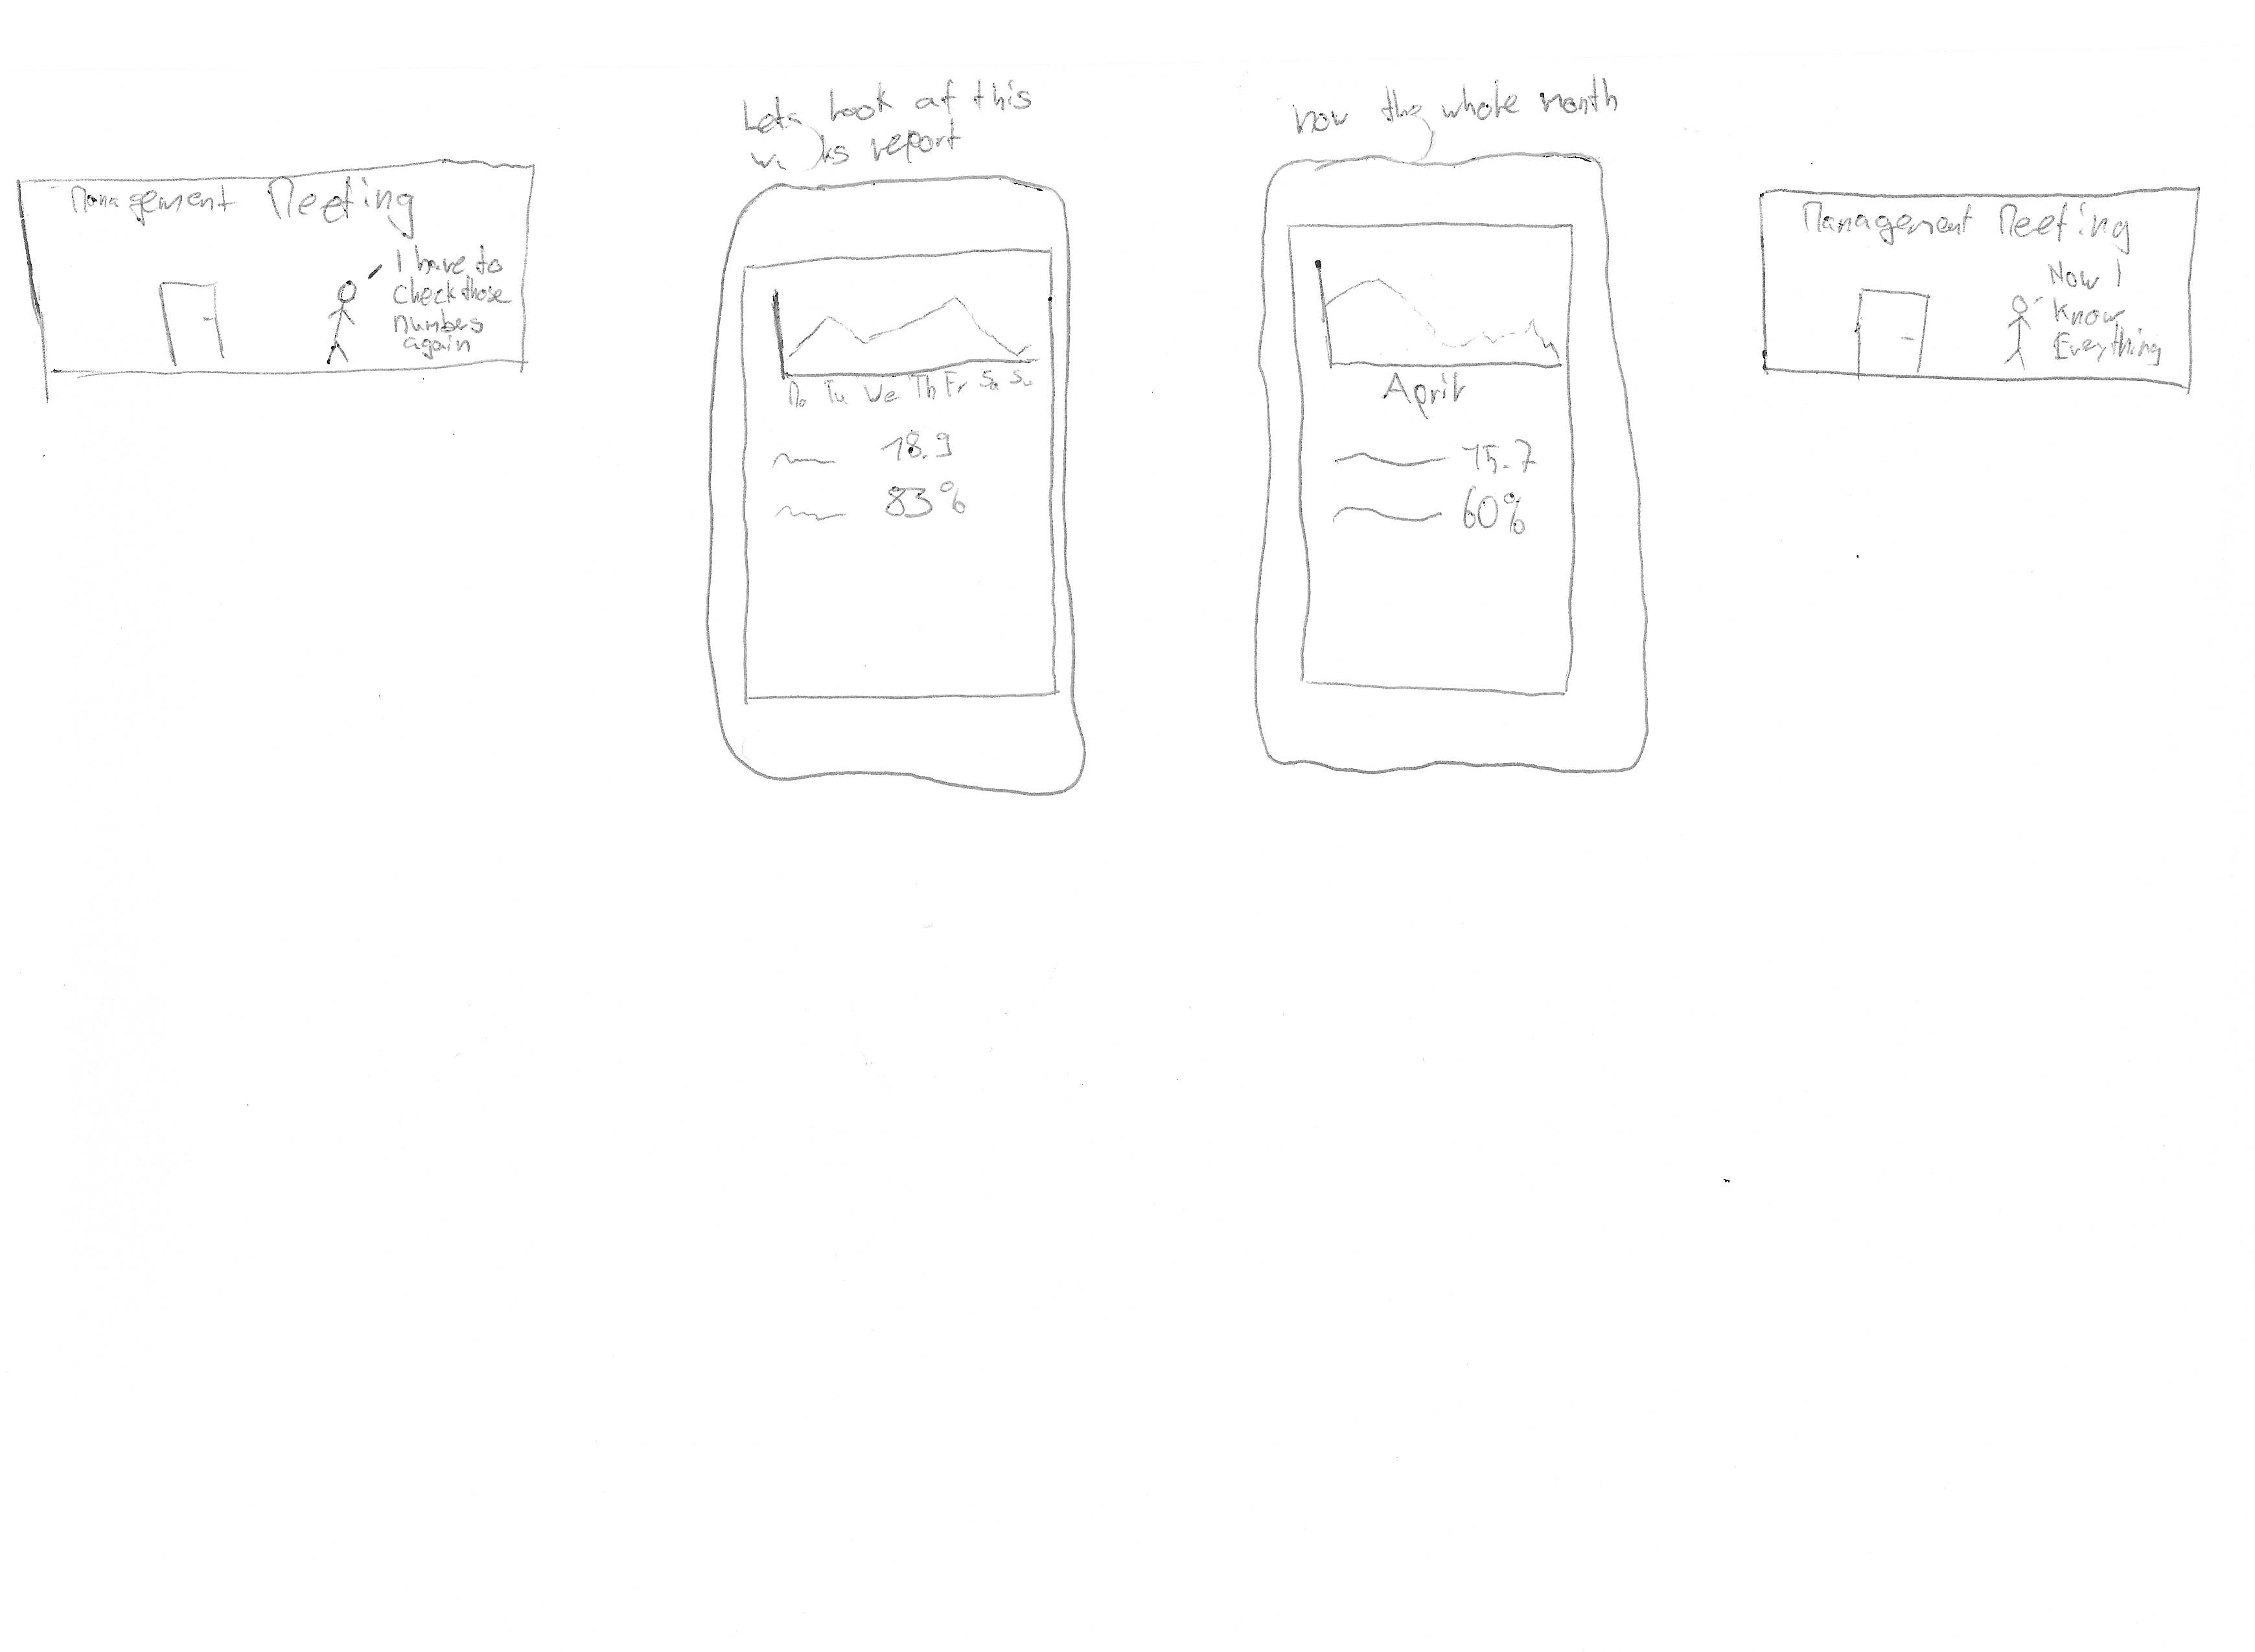 Management Meeting
I have to
check those
numbers
again
Lets look at this
report
Mo Tu We Th Fr Sa Su
18.9
83%
now the whole month
April
15.7
60%
Management Meeting
Now I
Know
Everything